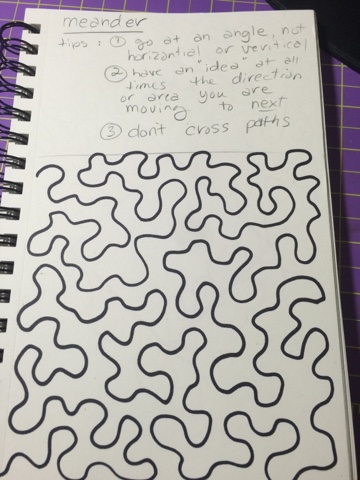 meander
tips: ① go at an angle, not
horizantial or veritical
② have an "idea" at all
times the direction
or area you are
moving to next
③ don't cross paths